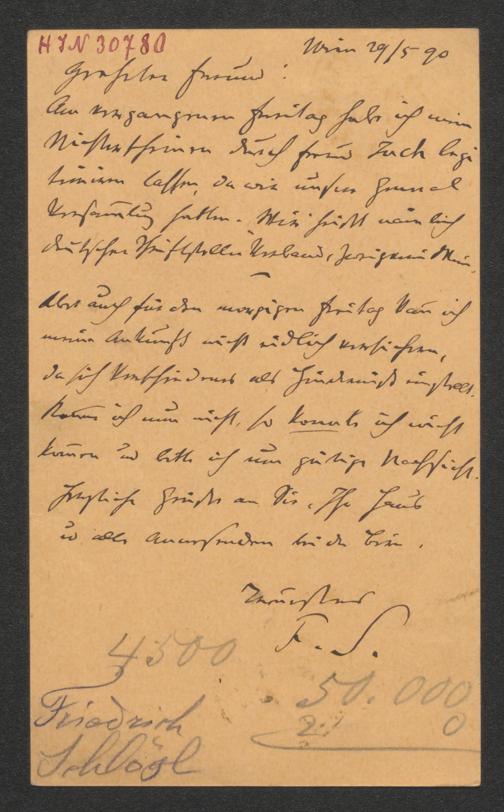 HIN 30780
Wien 29/5 90
Geehrter Freund!
Am vergangenen Freitag habe ich mein
Nichterscheinen durch Freund Zuch legi
timiren lassen, da wir unsere General
Versammlung hatten. Wir heißt nämlich
deutscher Schriftsteller Verband, Zweigverein Wien.
Aber auch für den morgigen Freitag kann ich
meine Ankunft nicht endlich versichern,
da sich Verschiedenes als Hinderniß einstellt.
Komme ich nun nicht, so konnte ich nicht
kommen und bitte ich um gütige Nachsicht.
Herzliche Grüße an Sie, Ihr Haus
u alle Anwesenden bei
F. S.
4500
50.000
2 0
Friedrich
Schlögl